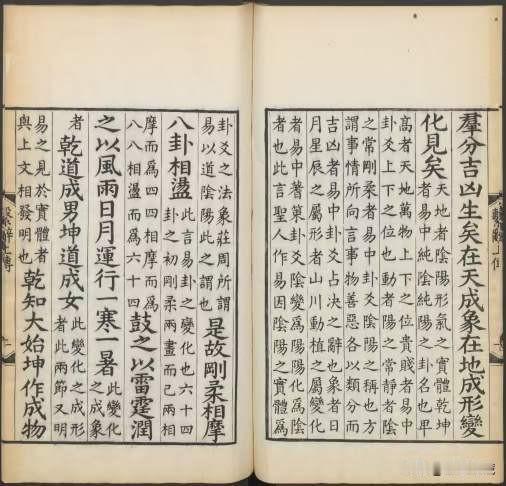 羣分吉凶生矣在天成象在地成形變
化見矣
天地者陰陽形氣之實體乾坤
者易中純陰純陽之卦名也卑
高者天地萬物上下之位貴賤者易中
卦爻上下之位也動者陽之常靜者陰
之常剛柔者易中卦爻陰陽之稱也方
謂事情所向言事物善惡各以類分而
吉凶者易中卦爻占決之辭也象者日
月星辰之屬形者山川動植之屬變化
者易中蓍策卦爻陰變爲陽陽化爲陰
者也此言聖人作易因陰陽之實體爲
卦爻之法象莊周所謂
易以道陰陽此之謂也
是故剛柔相摩
八卦相盪
此言易卦之變化也六十四
卦之初剛柔兩畫而已兩相
摩而爲四四相摩而爲
八八相盪而爲六十四
鼓之以雷霆潤
之以風雨日月運行一寒一暑
此變化
之成象
者
乾道成男坤道成女
此變化之成形
者此兩節又明
易之見於實體者
與上文相發明也
乾知大始坤作成物